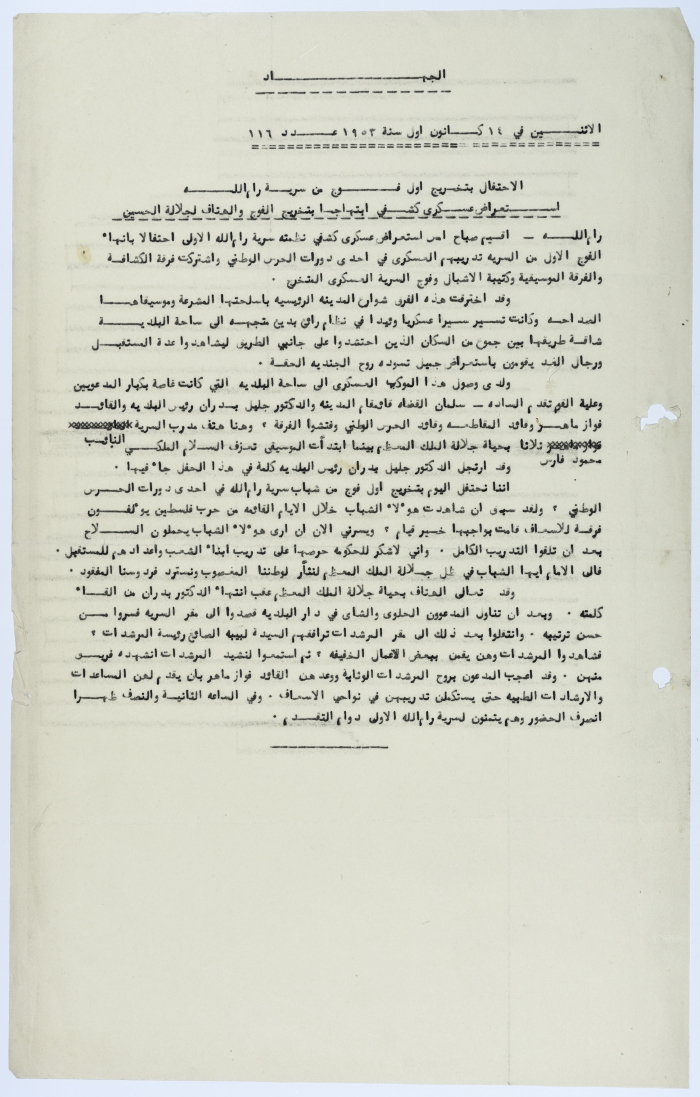 الجهاد
الاثنين في ١٤ كانون اول سنة ١٩٥٣ عدد ١١٦
الاحتفال بتخريج اول فوج من سرية رام الله
استعراض عسكرى كشفي ابتهاجا بتخريج الفوج والهتاف لجلالة الحسين
رام الله – اقيم صباح امس استعراض عسكرى كشفي نظمته سرية رام الله الاولى احتفالا بانهاء
الفوج الاول من السريه تدريبهم العسكرى في احدى دورات الحرس الوطني واشتركت فرقة الكشافة
والفرقة الموسيقية وكتيبة الاشبال وفوج السرية العسكرى المتخرج ٠
وقد اخترقت هذه الفرق شوارع المدينه الرئيسيه باسلحتها المشرعة وموسيقاهـا
الصداحه وكانت تسير سيرا عسكريا وئيدا في نظام رائع بديع متجهه الى ساحة البلديـة
شاقة طريقها بين جموع من السكان الذين احتشدوا على جانبي الطريق ليشاهدوا عدة المستقبل
ورجال الغد يقومون باستعراض جميل تسوده روح الجنديه الحقة ٠
ولدى وصول هذا الموكب العسكرى الى ساحة البلديه التي كانت غاصة بكبار المدعويين
وعلية القوم تقدم الساده – سلمان القضاه قائمقام المدينه والدكتور جليل بدران رئيس البلديه والقائد
فواز ماهر وقائد المقاطعه وقائد الحرس الوطني وفتشوا الفرقة ؟ وهنا هتف مدرب السرية النائب
محمود فارس ثلاثا بحياة جلالة الملك المعظم بينما ابتدأت الموسيقى تعزف السلام الملكي
وقد ارتجل الدكتور جليل بدران رئيس البلديه كلمة في هذا الحفل جاء فيها ٠
اننا نحتفل اليوم بتخريج اول فوج من شباب سرية رام الله في احدى دورات الحرس
الوطني ؟ ولقد سبق ان شاهدت هولاء الشباب خلال الايام القائمه من حرب فلسطين يولفون
فرقة للاسعاف قامت بواجبها خير قيام ؟ ويسرني الان ان ارى هولاء الشباب يحملون السلاح
بعد ان تلقوا التدريب الكامل ٠ واني لاشكر للحكومه حرصها على تدريب ابناء الشعب واعدادهم للمستقبل ٠
فالى الامام ايها الشباب في ظل جلالة الملك المعظم لنثأر لوطننا المغصوب ونسترد فردوسنا المفقود ٠
وقد تعالى الهتاف بحياة جلالة الملك المعظم عقب انتهاء الدكتور بدران من القاء
كلمته ٠ وبعد ان تناول المدعوون الحلوى والشاى في دار البلديه قصدوا الى مقر السريه فسروا من
حسن ترتيبه ٠ وانتقلوا بعد ذلك الى مقر المرشدات ترافقهم السيدة لبيبه الصائغ رئيسة المرشدات ؟
فشاهدوا المرشدات وهن يقمن ببعض الاعمال الخفيفه ؟ ثم استمعوا لنشيد المرشدات انشده فريق
منهن ٠ وقد اعجب المدعون بروح المرشدات الوثابة ووعدهن القائد فواز ماهر بان يقدم لهن المساعدات
والارشادات الطبيه حتى يستكملن تدريبهن في نواحي الاسعاف ٠ وفي الساعه الثانية والنصف ظهرا
انصرف الحضور وهم يتمنون لسرية رام الله الاولى دوام التقدم ٠